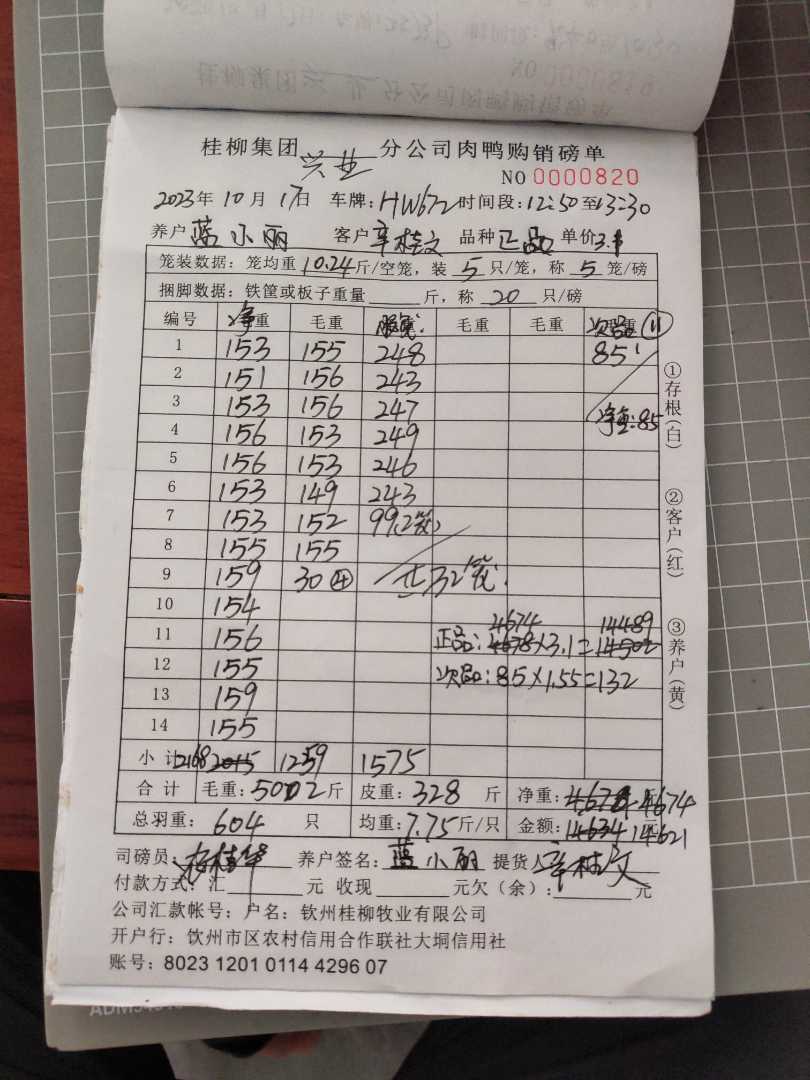 桂柳集团 兴业 分公司肉鸭购销磅单
NO 0000820
2023年 10月 17日 车牌: HW672 时间段: 12:50 至 13:30
养户 蓝小丽 客户 辛桂文 品种 正品 单价 3.1
笼装数据: 笼均重 10.24 斤/空笼, 装 5 只/笼, 称 5 笼/磅
捆脚数据: 铁筐或板子重量 斤, 称 20 只/磅
编号 净重 毛重 毛重 毛重 次品 11
1 153 155 248 85
2 151 156 243
3 153 156 247 净重:85
4 156 153 249
5 156 153 246
6 153 149 243
7 153 152 99(2笼)
8 155 155
9 159 30 ④ 共32笼
10 154
4674 14489
11 156 正品: 4678×3.1=14502
12 155 次品: 85×1.55=132
13 159
14 155
小计 2168 2015 1259 1575
合计 毛重: 5002 斤 皮重: 328 斤 净重: 4674
总羽重: 604 只 均重: 7.75 斤/只 金额: 14634 14621 元
司磅员: 养户签名: 蓝小丽 提货人: 辛桂文
付款方式: 汇 元 收现 元欠（余）: 元
公司汇款帐号: 户名: 钦州桂柳牧业有限公司
开户行: 饮州市区农村信用合作联社大垌信用社
账号: 8023 1201 0114 4296 07
①存根(白)
②客户(红)
③养户(黄)